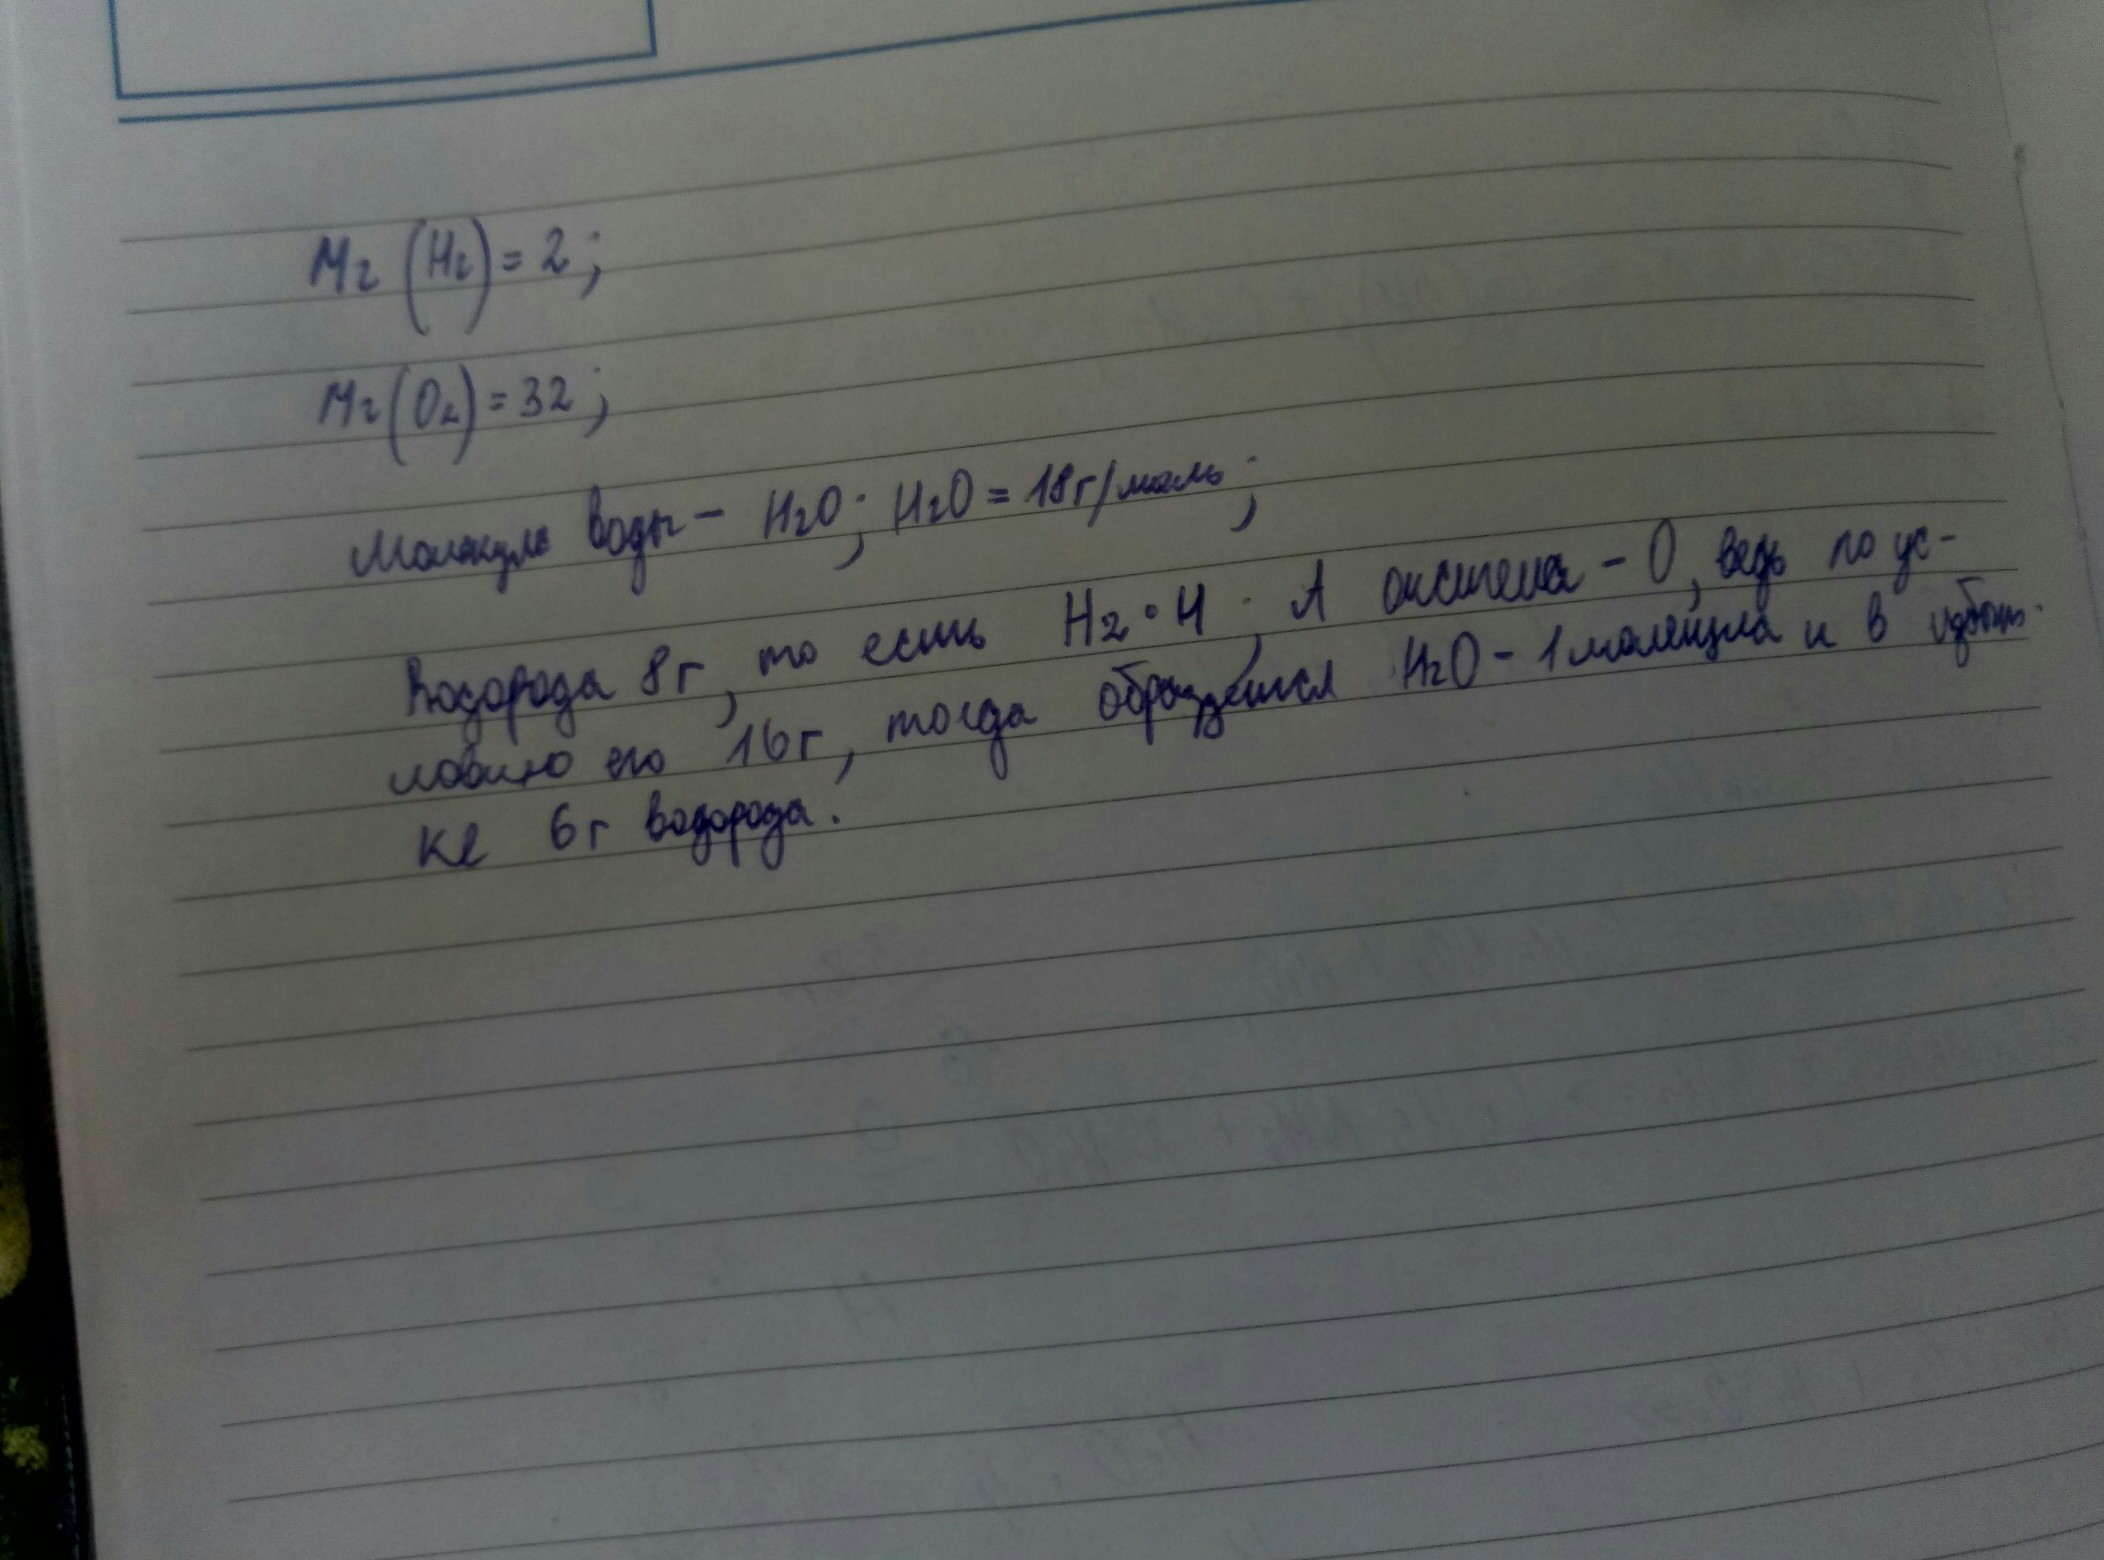 Mr (H₂) = 2;
Mr (O₂) = 32;
Молекула воды - H₂O; H₂O = 18 г/моль;
Водорода 8г, то есть H₂ • 4; А оксигена - O, ведь по ус-
ловию его 16г, тогда образуется H₂O - 1 молекула и в избыт-
ке 6г водорода.